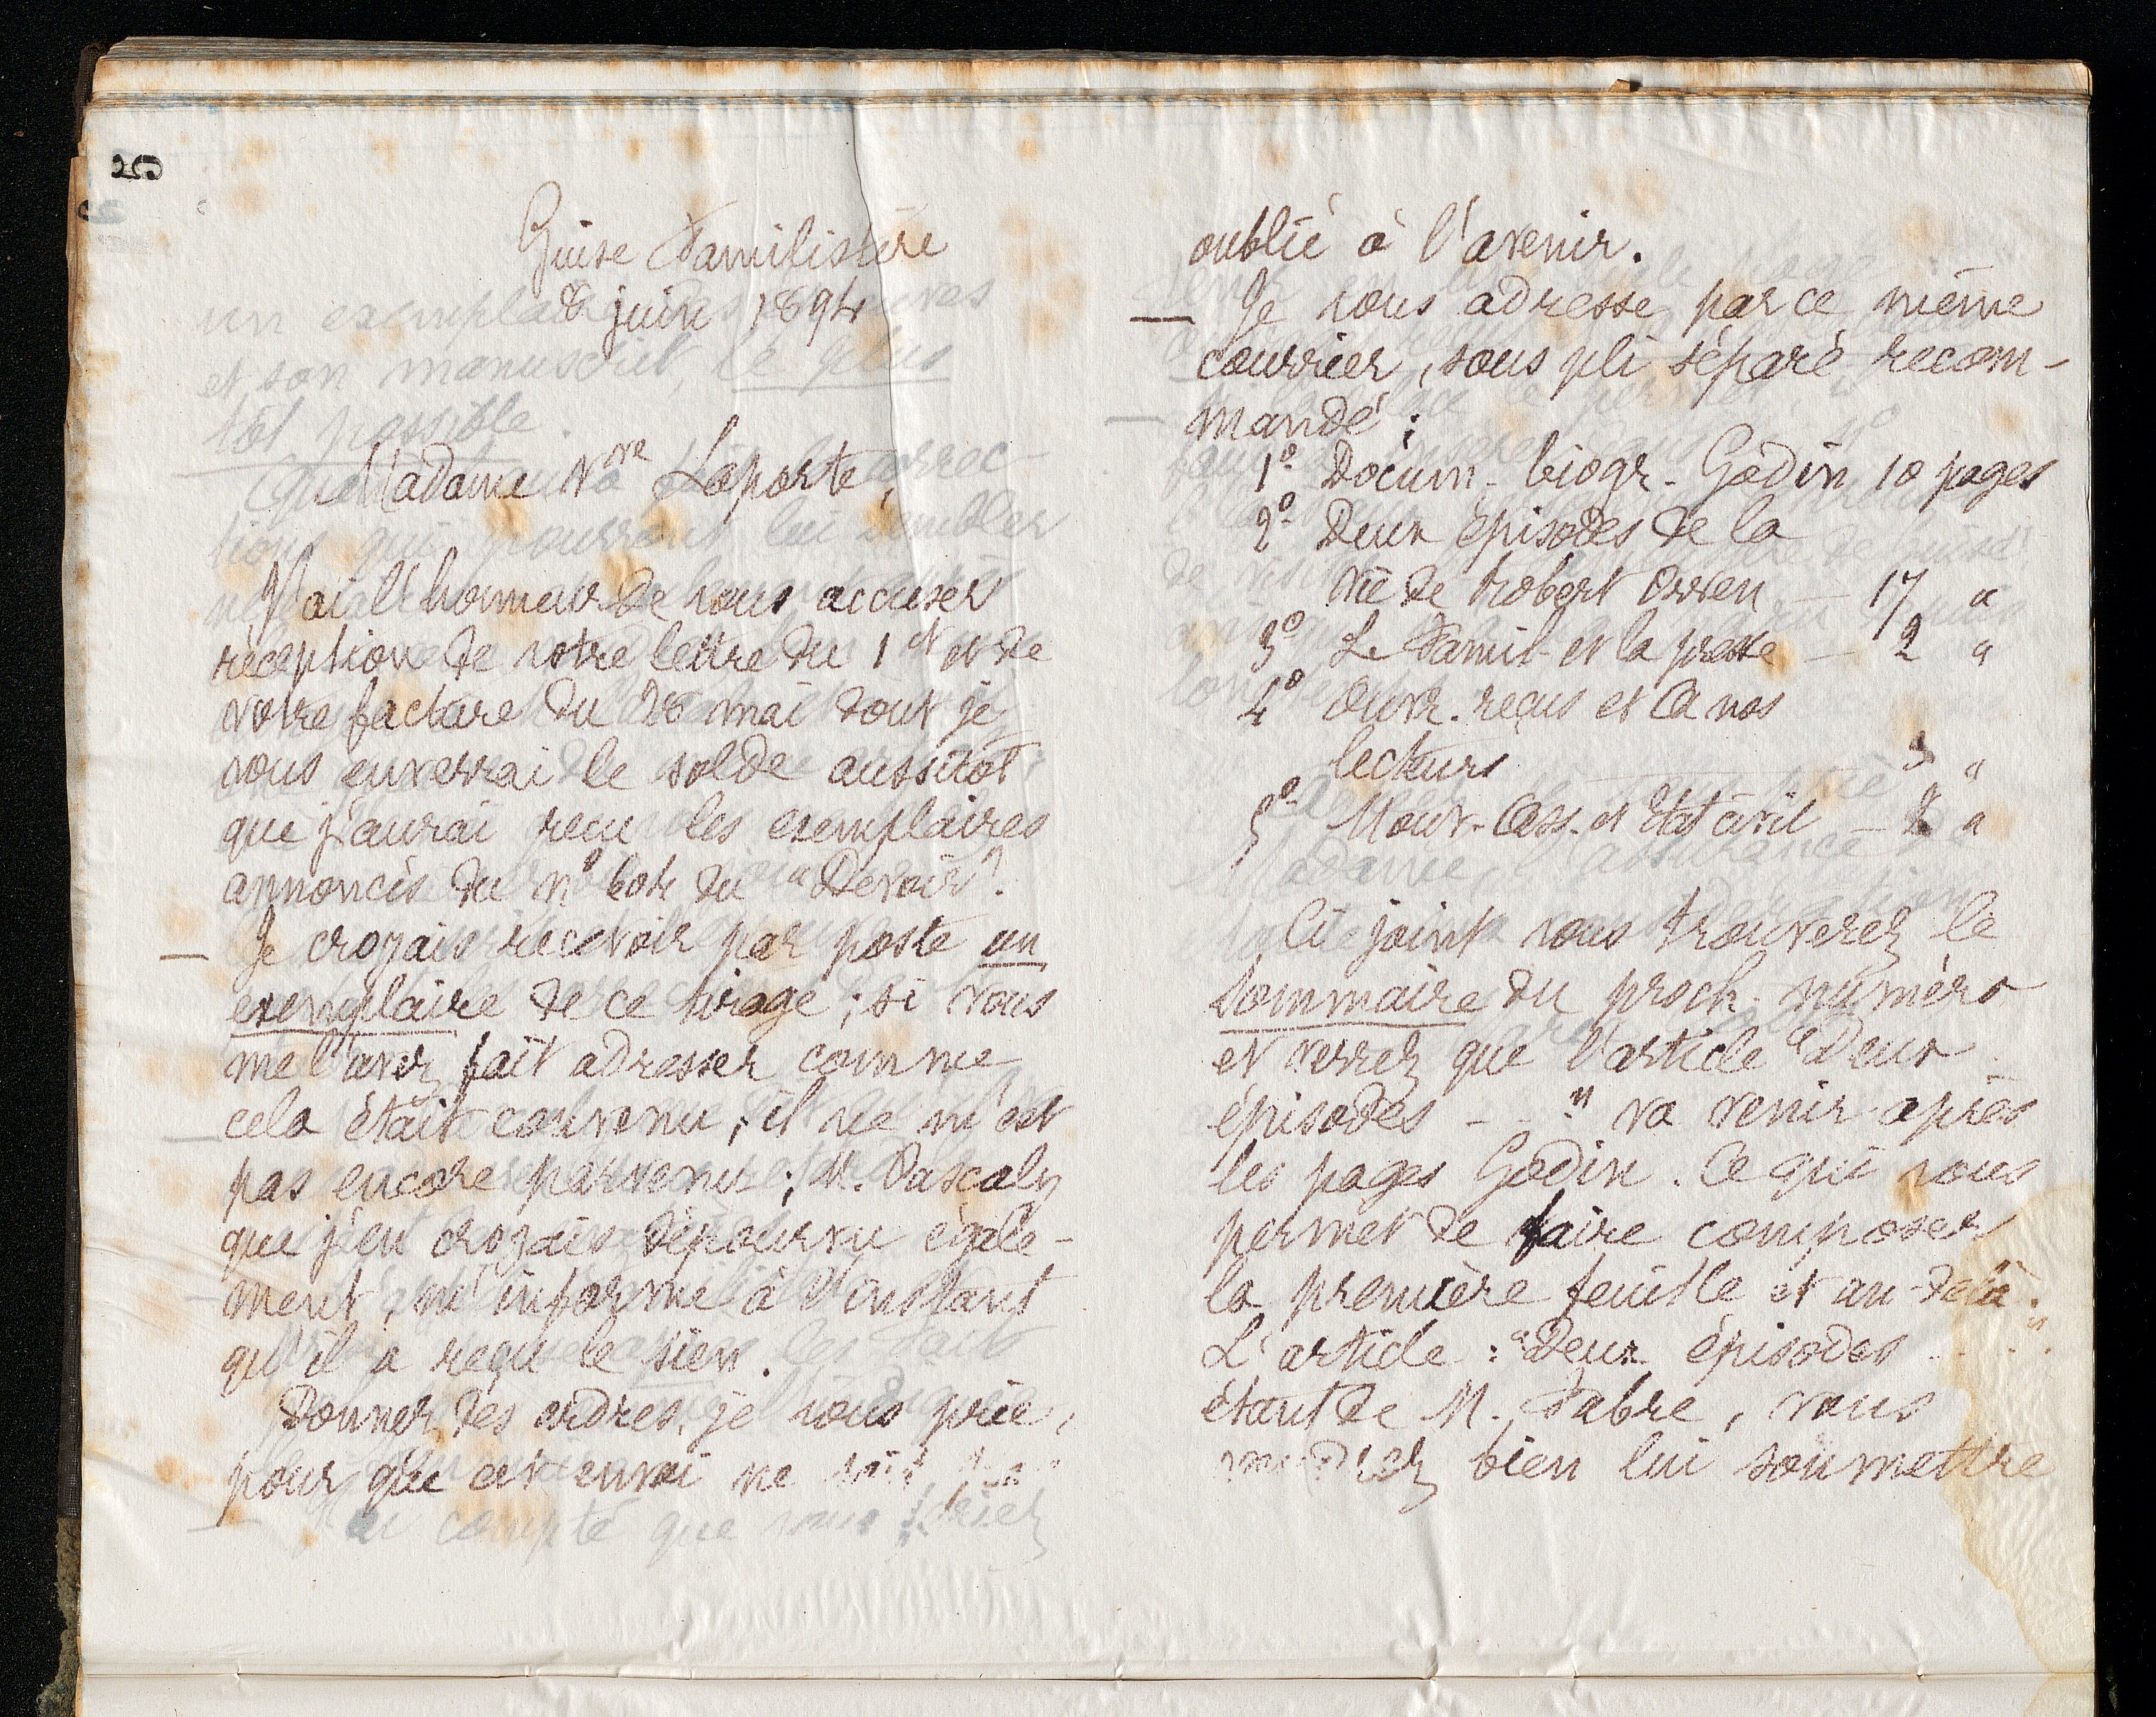 Guise Familistère
8 juin 1894
Madame Vve Laporte,
J'ai l'honneur de vous accuser
réception de votre lettre du 1er et de
votre facture du 28 mai dont je
vous enverrai le solde aussitôt
que j'aurai reçu les exemplaires
annoncés du nº 604 du "Devoir".
— Je croyais recevoir par poste un
exemplaire de ce tirage ; si vous
me l'avez fait adresser comme
cela était convenu, il ne m'est
pas encore parvenu ; M. Pascaly
que j'en croyais dépourvu égale-
ment, m'informe à l'instant
qu'il a reçu le sien.
Donner des ordres, je vous prie,
pour que cet envoi ne soit
oublié à l'avenir.
— Je vous adresse par ce même
courrier, sous pli séparé recom-
mandé :
1º Docum. biogr. Godin 10 pages
2º Deux épisodes de la
vie de Robert Owen — 17 "
3º Le Famil. et la presse — 2 "
4º Ouvr. reçus et A nos
lecteurs "
5º Mouv. Ass. et Etat civil — "
Ci-joint vous trouverez le
sommaire du proch. numéro
et verrez que l'article "Deux
épisodes - - " va venir après
les pages Godin. Ce qui vous
permet de faire composer
la première feuille et au-delà.
L'article : "Deux épisodes ...."
étant de M. Fabre, vous
voudrez bien lui soumettre
un exemplaire des épreuves
et son manuscrit le plus
tôt possible.